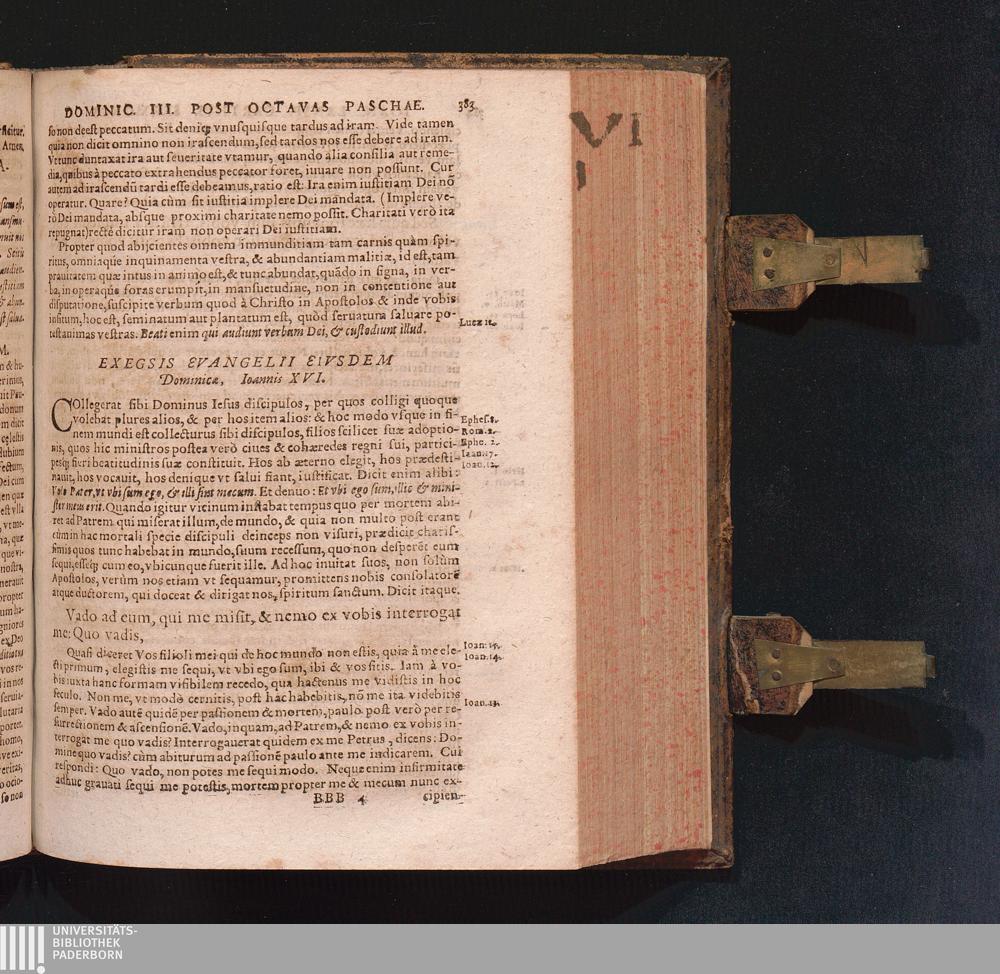 DOMINIC. III. POST OCTAVAS PASCHAE. 383
so non deest peccatum. Sit deniq; vnusquisque tardus ad iram. Vide tamen
quia non dicit omnino non irascendum, sed tardos nos esse debere ad iram.
Vt tunc duntaxat ira aut seueritate vtamur, quando alia consilia aut reme-
dia, quibus à peccato extrahendus peccator foret, iuuare non possunt. Cur
autem ad irascendũ tardi esse debeamus, ratio est: Ira enim iustitiam Dei nõ
operatur. Quare? Quia cùm sit iustitia implere Dei mandata. (Implere ve-
rò Dei mandata, absque proximi charitate nemo possit. Charitati verò ita
repugnat) rectè dicitur iram non operari Dei iustitiam.
Propter quod abijcientes omnem immunditiam tam carnis quàm spi-
ritus, omniaq́ue inquinamenta vestra, & abundantiam malitiæ, id est, tam
prauitatem quæ intus in animo est, & tunc abundat, quãdo in signa, in ver-
ba, in operaq́ue foras erumpit, in mansuetudine, non in contentione aut
disputatione, suscipite verbum quod à Christo in Apostolos & inde vobis
insitum, hoc est, seminatum aut plantatum est, quòd seruatum saluare po-
test animas vestras. Beati enim qui audiunt verbum Dei, & custodiunt illud.
Lucæ 11.
EXEGSIS EVANGELII EIVSDEM
Dominicæ, Ioannis XVI.
COllegerat sibi Dominus Iesus discipulos, per quos colligi quoque
volebat plures alios, & per hos item alios: & hoc modo vsque in fi-
nem mundi est collecturus sibi discipulos, filios scilicet suæ adoptio-
nis, quos hic ministros postea verò ciues & cohæredes regni sui, partici-
pesq; fieri beatitudinis suæ constituit. Hos ab æterno elegit, hos prædesti-
nauit, hos vocauit, hos denique vt salui fiant, iustificat. Dicit enim alibi:
Volo Pater, vt vbi sum ego, & illi sint mecum. Et denuo: Et vbi ego sum, illic & mini-
ster meus erit. Quando igitur vicinum instabat tempus quo per mortem abi-
ret ad Patrem qui miserat illum, de mundo, & quia non multo post erant
eum in hac mortali specie discipuli deinceps non visuri, prædicit charis-
simis quos tunc habebat in mundo, suum recessum, quo non desperẽt eum
sequi, esseq; cum eo, vbicunque fuerit ille. Ad hoc inuitat suos, non solùm
Apostolos, verùm nos etiam vt sequamur, promittens nobis consolatorẽ
atque ductorem, qui doceat & dirigat nos, spiritum sanctum. Dicit itaque.
Ephes. 1.
Rom. 2.
Ephe. 2.
Ioan. 17.
Ioan. 12.
Vado ad eum, qui me misit, & nemo ex vobis interrogat
me: Quo vadis,
Quasi diceret Vos filioli mei qui de hoc mundo non estis, quia à me ele-
cti primum, elegistis me sequi, vt vbi ego sum, ibi & vos sitis. Iam à vo-
bis iuxta hanc formam visibilem recedo, qua hactenus me vidistis in hoc
seculo. Non me, vt modò cernitis, post hac habebitis, nõ me ita videbitis
semper. Vado autẽ quidẽ per passionem & mortem, paulo post verò per re-
surrectionem & ascensionẽ. Vado, inquam, ad Patrem, & nemo ex vobis in-
terrogat me quo vadis? Interrogauerat quidem ex me Petrus, dicens: Do-
mine quo vadis? cùm abiturum ad passionẽ paulo ante me indicarem. Cui
respondi: Quo vado, non potes me sequi modo. Neque enim infirmitate
adhuc grauati sequi me potestis, mortem propter me & mecum nunc ex-
Ioan. 15.
Ioan. 14.
Ioan. 13.
BBB 4 cipien-
VI
UNIVERSITÄTS-
BIBLIOTHEK
PADERBORN